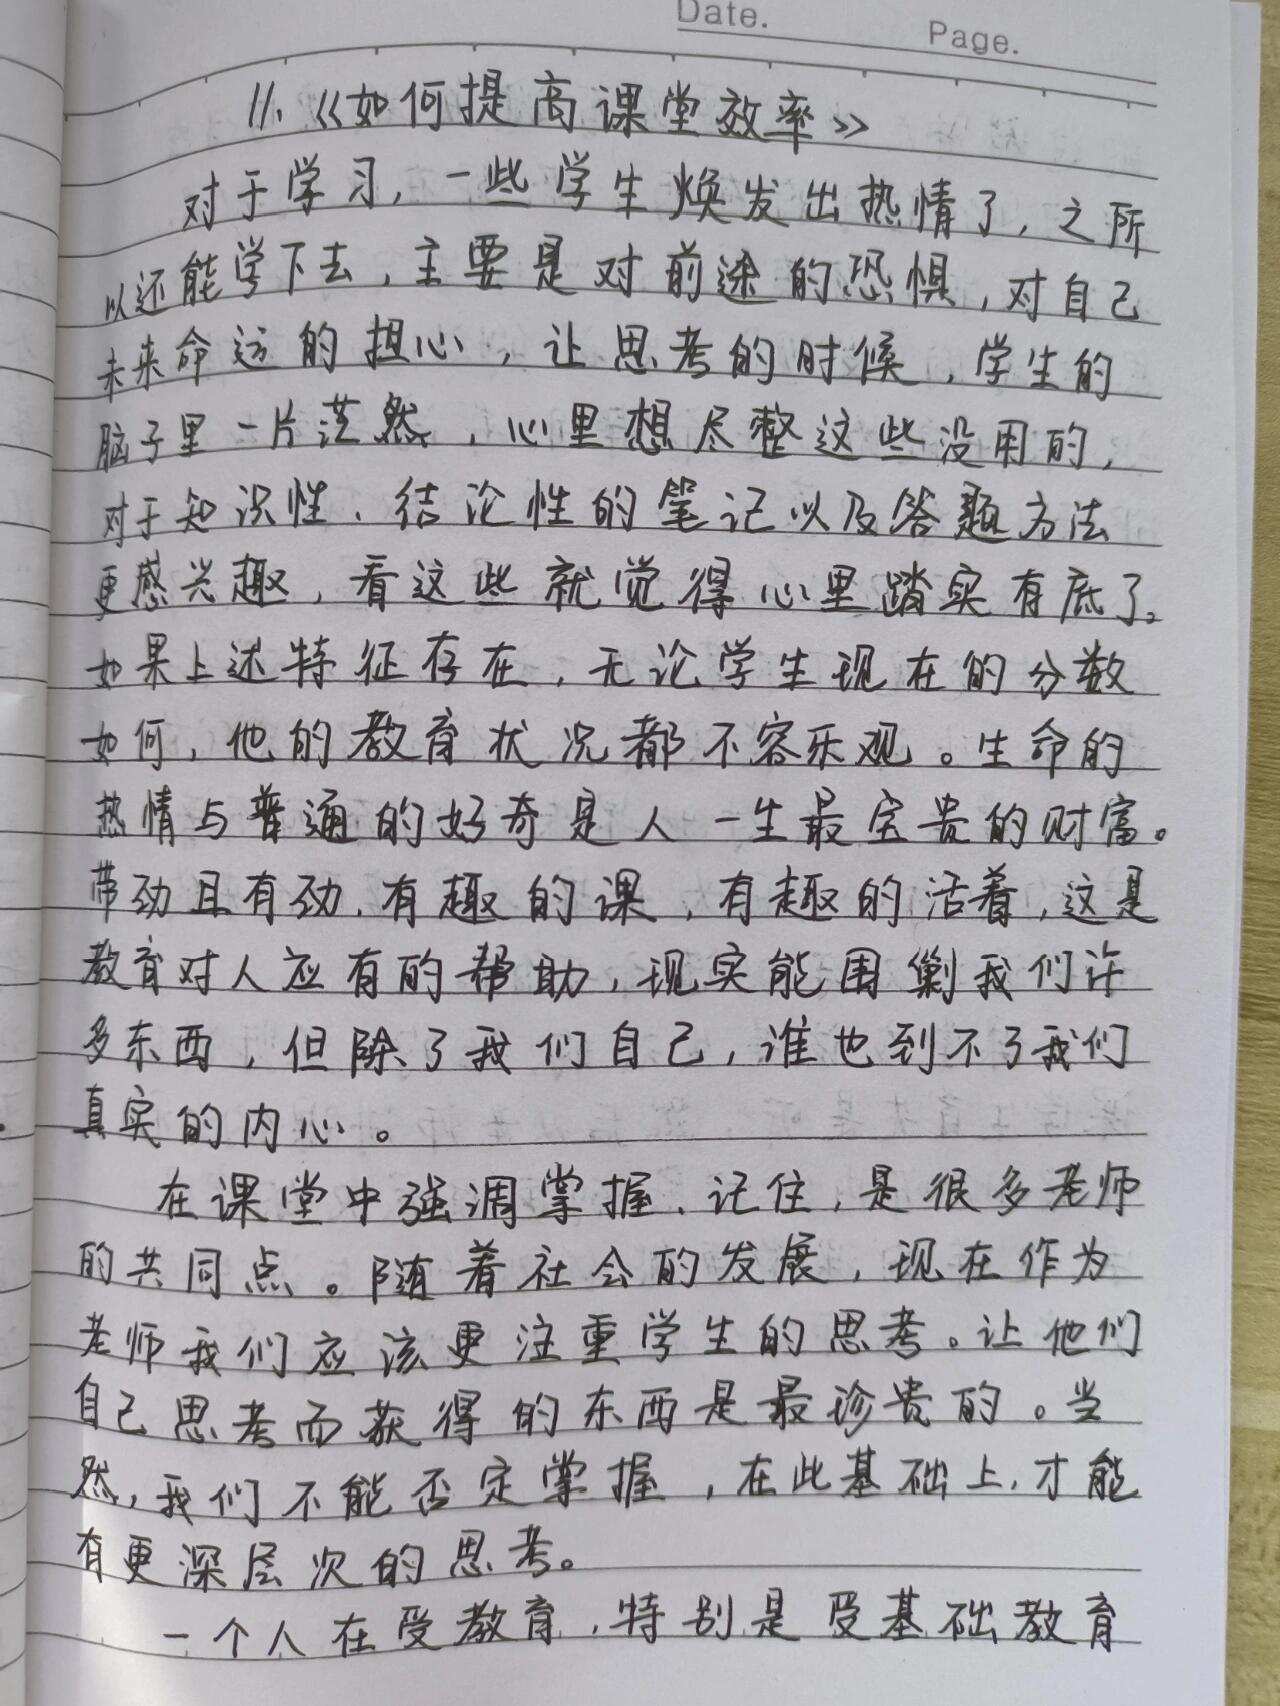 Date.
Page.
11.《如何提高课堂效率》
对于学习，一些学生焕发出热情了，之所
以还能学下去，主要是对前途的恐惧，对自己
未来命运的担心，让思考的时候，学生的
脑子里一片茫然，心里想尽整这些没用的，
对于知识性、结论性的笔记以及答题方法
更感兴趣，看这些就觉得心里踏实有底了。
如果上述特征存在，无论学生现在的分数
如何，他的教育状况都不容乐观。生命的
热情与普通的好奇是人一生最宝贵的财富。
带劲且有劲、有趣的课，有趣的活着，这是
教育对人应有的帮助，现实能围剿我们许
多东西，但除了我们自己，谁也到不了我们
真实的内心。
在课堂中强调掌握、记住，是很多老师
的共同点。随着社会的发展，现在作为
老师我们应该更注重学生的思考。让他们
自己思考而获得的东西是最珍贵的。当
然，我们不能否定掌握，在此基础上，才能
有更深层次的思考。
一个人在受教育，特别是受基础教育